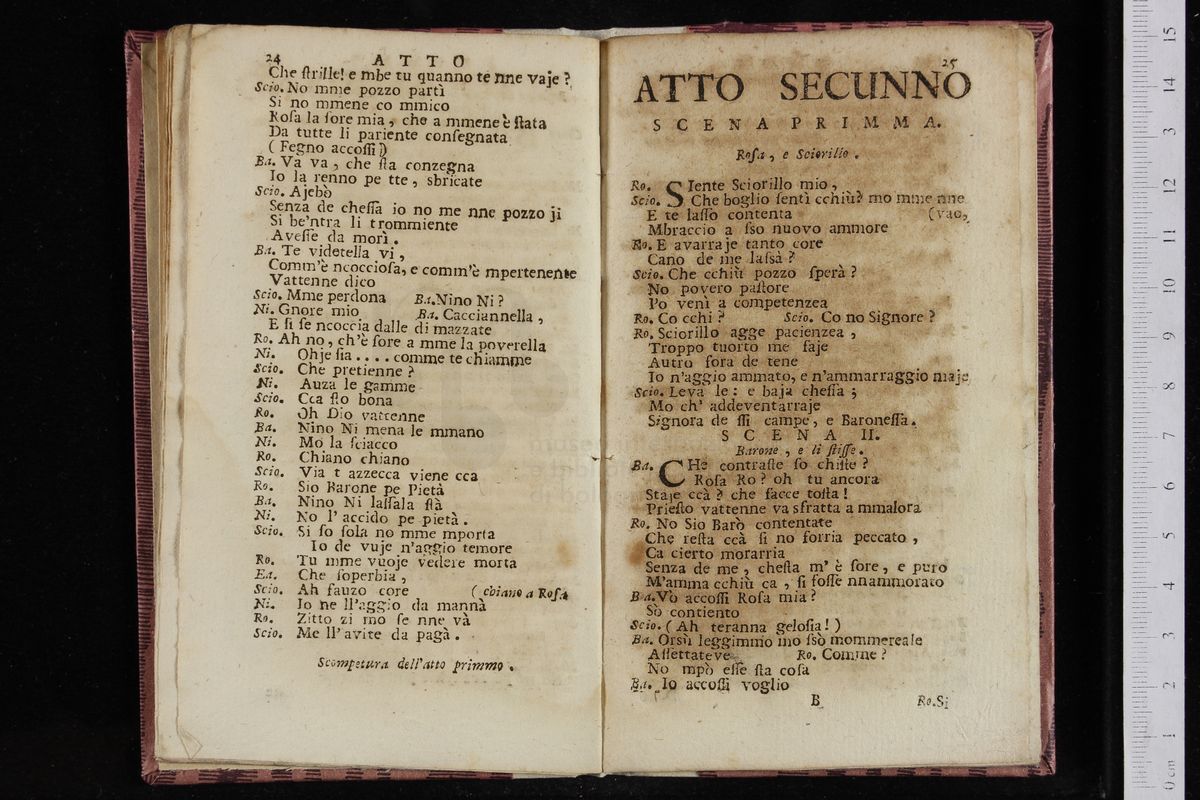 24 ATTO
Che ſtrille! e mbe tu quanno te nne vaje?
Scio. No mme pozzo partì
Si no mmene co mmico
Roſa la ſore mia, che a mmene è ſtata
Da tutte li pariente conſegnata
( Fegno accoſſì)
Ba. Va va, che ſta conzegna
Io la renno pe tte, sbricate
Scio. Ajebò
Senza de cheſſa io no me nne pozzo ji
Si be'ntra li trommiente
Aveſſe da morì.
Ba. Te videtella vi,
Comm'è ncoccioſa, e comm'è mpertenente
Vattenne dico
Scio. Mme perdona Ba. Nino Ni?
Ni. Gnore mio Ba. Cacciannella,
E ſi ſe ncoccia dalle di mazzate
Ro. Ah no, ch'è ſore a mme la poverella
Ni. Ohje ſia.... comme te chiamme
Scio. Che pretienne?
Ni. Auza le gamme
Scio. Cca ſto bona
Ro. Oh Dio vattenne
Ba. Nino Ni mena le mmano
Ni. Mo la ſciacco
Ro. Chiano chiano
Scio. Via t azzecca viene cca
Ro. Sio Barone pe Pietà
Ba. Nino Ni laſſala ſtà
Ni. No l'accido pe pietà.
Scio. Si ſo ſola no mme mporta
Io de vuje n'aggio temore
Ro. Tu mme vuoje vedere morta
Ba. Che ſoperbia,
Scio. Ah fauzo core ( chiano a Roſa
Ni. Io ne ll'aggio da mannà
Ro. Zitto zi mo ſe nne và
Scio. Me ll'avite da pagà.
Scompetura dell'atto primmo.
25
ATTO SECUNNO
SCENA PRIMMA.
Roſa, e Sciorillo.
Ro. SIente Sciorillo mio,
Scio. Che boglio ſentì cchiù? mo mme nne
E te laſſo contenta (vao,
Mbraccio a ſso nuovo ammore
Ro. E avarraje tanto core
Cano de me laſsà?
Scio. Che cchiù pozzo ſperà?
No povero paſtore
Po venì a competenzea
Ro. Co cchi? Scio. Co no Signore?
Ro. Sciorillo agge pacienzea,
Troppo tuorto me faje
Autro fora de tene
Io n'aggio ammato, e n'ammarraggio maje
Scio. Leva le: e baja cheſſa;
Mo ch' addeventarraje
Signora de ſſi campe, e Baroneſſa.
SCENA II.
Barone, e li ſtiſſe.
Ba. CHe contraſte ſo chiſte?
Roſa Ro? oh tu ancora
Staje ccà? che facce toſta!
Prieſto vattenne va sfratta a mmalora
Ro. No Sio Barò contentate
Che reſta ccà ſi no forria peccato,
Ca cierto morarria
Senza de me, cheſta m' è ſore, e puro
M'amma cchiù ca, ſi foſſe nnammorato
Ba. Vò accoſſì Roſa mia?
Sò contiento
Scio. ( Ah teranna geloſia!)
Ba. Orsù leggimmo mo ſsò mommereale
Aſſettateve Ro. Comme?
No mpò eſſe ſta coſa
Ba. Io accoſſì voglio
B Ro. Si